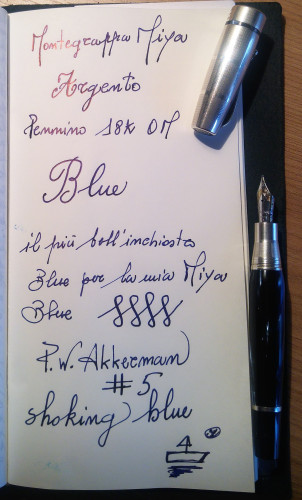 Montegrappa Miya
Argento
Pennino 18k OM
Blue
il più bell'inchiostro
Blue per la mia Miya
Blue
P.W. Akkerman
#5
shoking blue
4